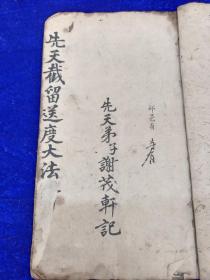 先天弟子謝茂軒記
先天截留送度大法